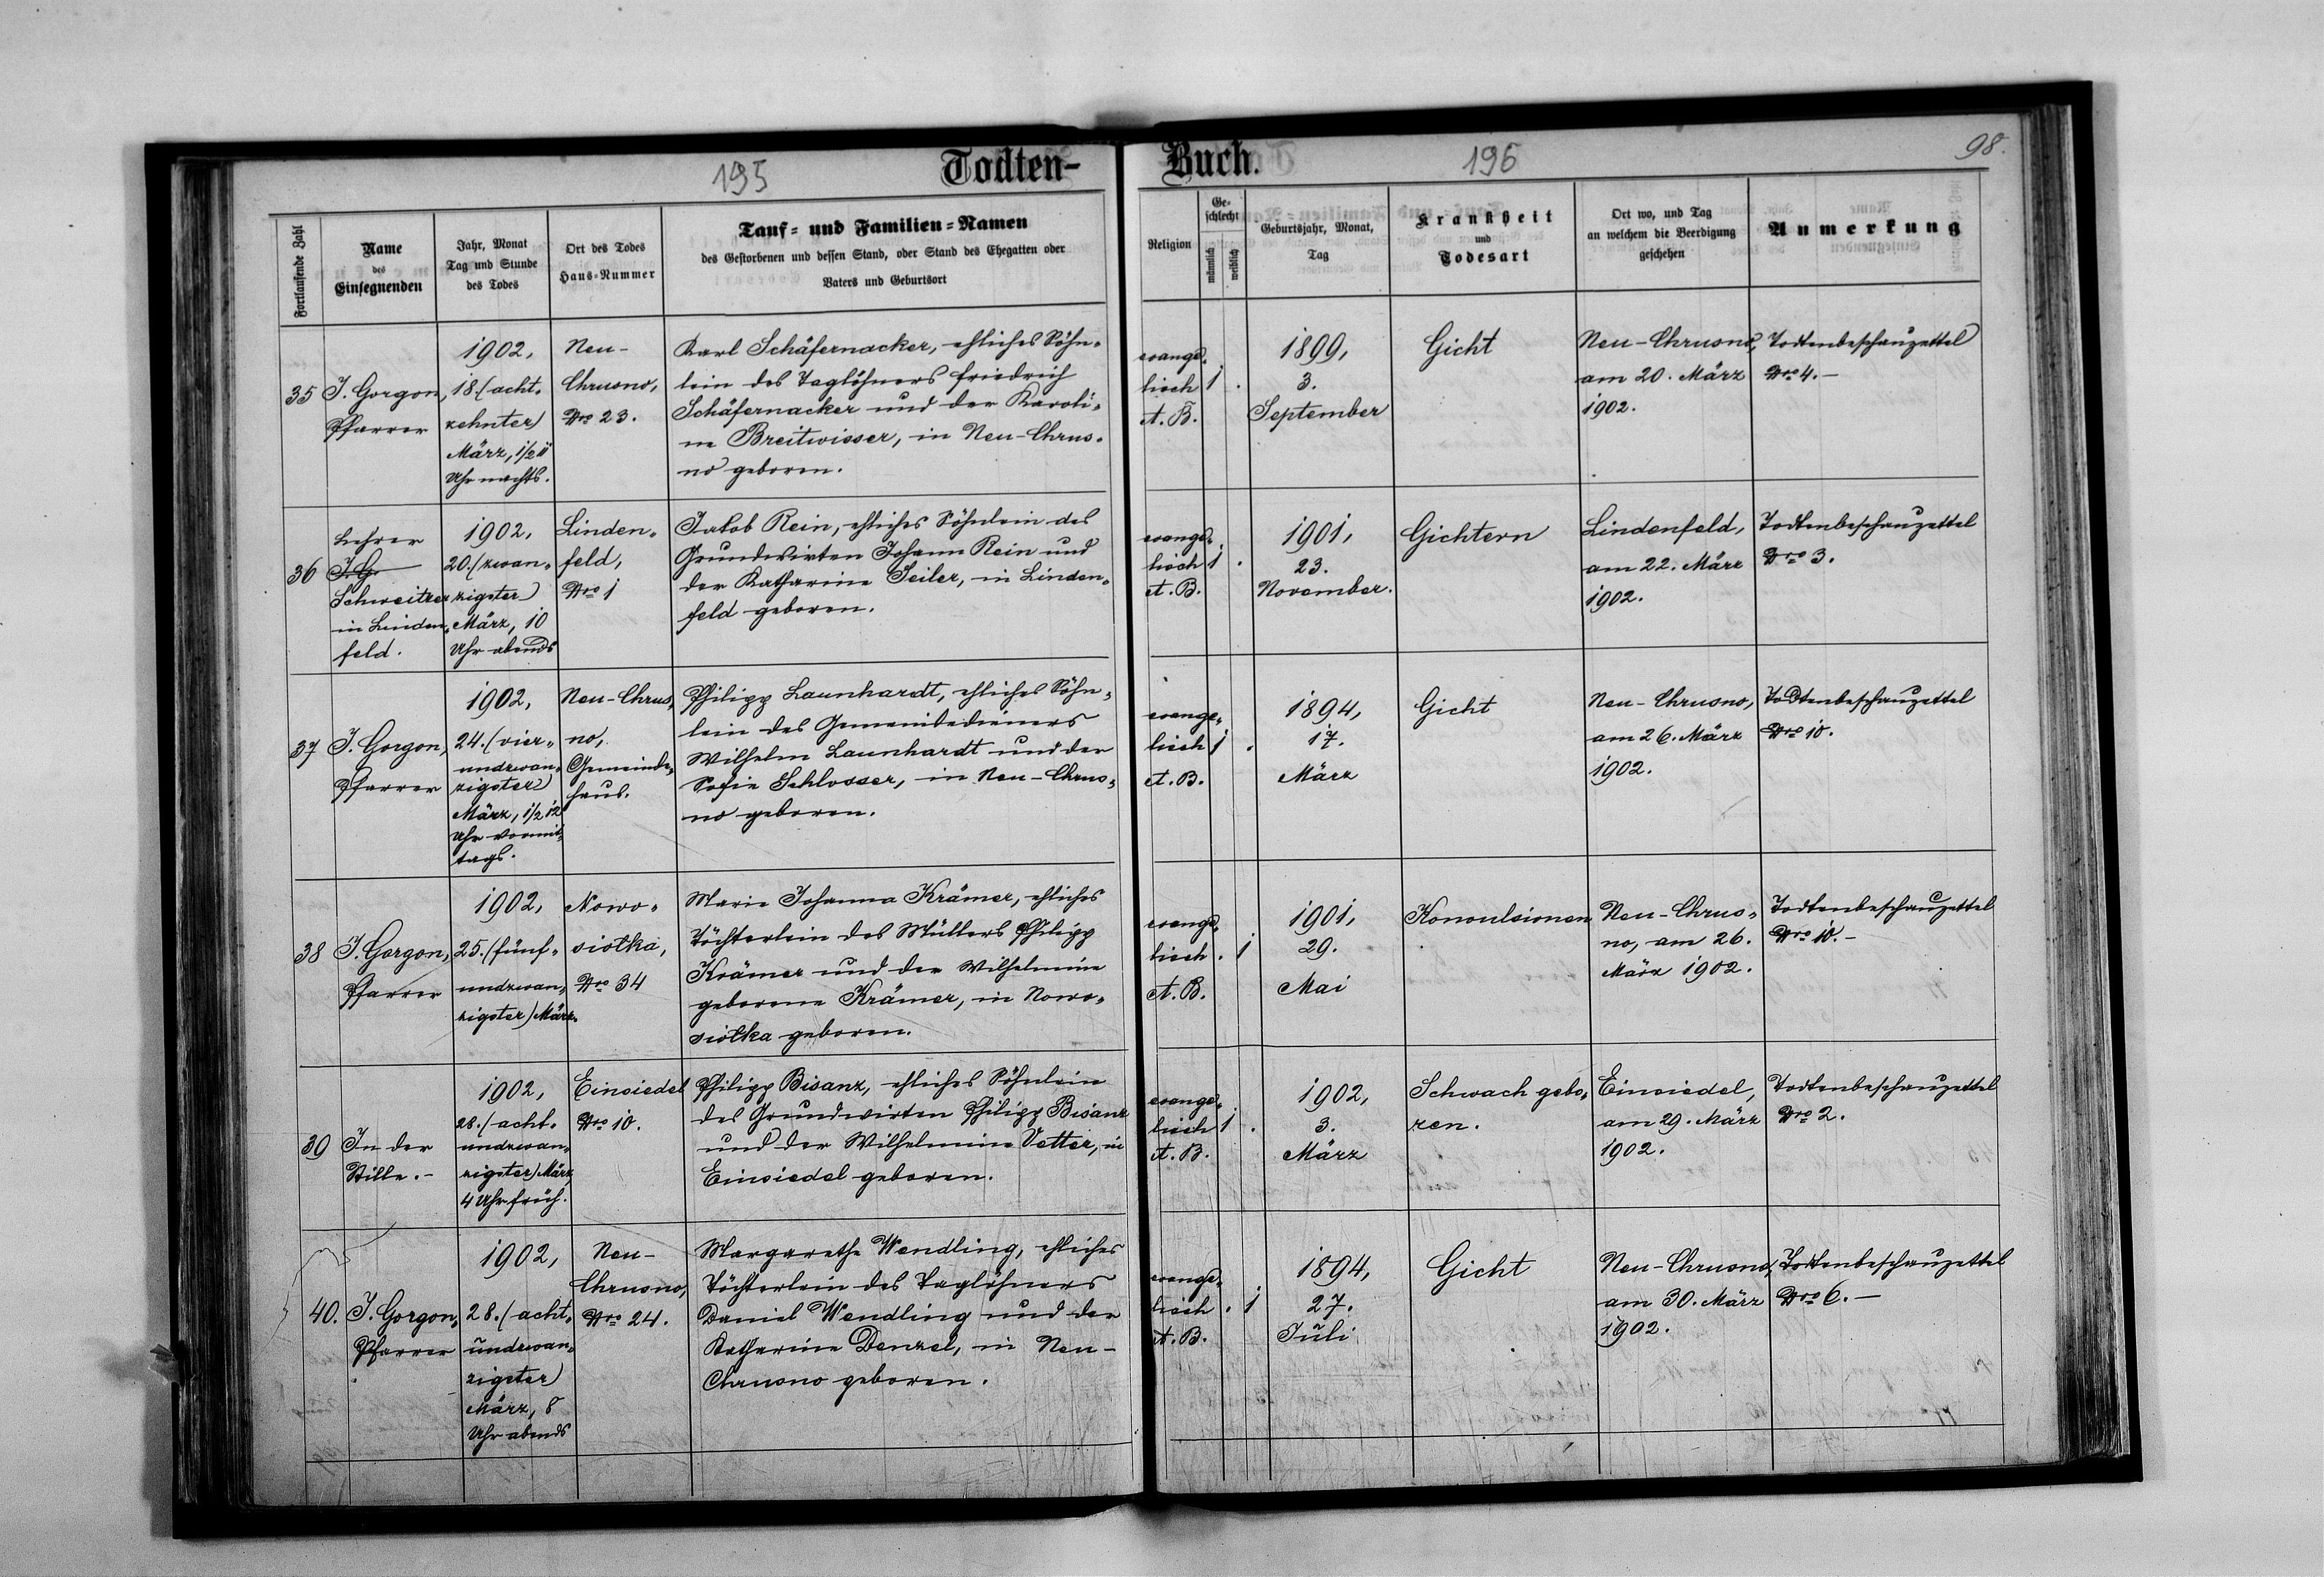 195
Todten-
Buch.
196
98.
Fortlaufende Zahl
Name
des
Einsegnenden
Jahr, Monat
Tag und Stunde
des Todes
Ort des Todes
Haus-Nummer
Tauf- und Familien-Namen
des Gestorbenen und dessen Stand, oder Stand des Ehegatten oder
Vaters und Geburtsort
Religion
Ge-
schlecht
männlich
weiblich
Geburtsjahr, Monat,
Tag
Krankheit
und
Todesart
Ort wo, und Tag
an welchem die Beerdigung
geschehen
Anmerkung
35
J. Gorgon,
Pfarrer
1902,
18. (acht-
zehnter)
März, 1/2 11
Uhr nachts.
Neu-
Chrusno,
Nro 23.
Karl Schäfernacker, ehliches Söhn-
lein des Taglöhners Friedrich
Schäfernacker und der Karoli-
ne Breitwisser, in Neu-Chrus-
no geboren.
evange-
lisch
A. B.
1
.
1899,
3.
September
Gicht
Neu-Chrusno,
am 20. März
1902.
Todtenbeschauzettel
Nro 4.-
36
Lehrer
J. G.
Schweitzer
in Linden-
feld.
1902,
20. (zwan-
zigster)
März, 10
Uhr abends
Linden-
feld,
Nro 1
Jakob Rein, ehliches Söhnlein des
Grundwirten Johann Rein und
der Katharina Seiler, in Linden-
feld geboren.
evange-
lisch
A. B.
1
.
1901,
23.
November.
Gichtern
Lindenfeld,
am 22. März
1902.
Todtenbeschauzettel
Nro 3.
37
J. Gorgon,
Pfarrer
1902,
24. (vier-
undzwan-
zigster)
März, 1/2 12
Uhr vormit-
tags.
Neu-Chrus-
no,
Gemeinde-
haus.
Philipp Launhardt, ehliches Söhn-
lein des Gemeindedieners
Wilhelm Launhardt und der
Sofie Schlosser, in Neu-Chrus-
no geboren.
evange-
lisch
A. B.
1
.
1894,
17.
März
Gicht
Neu-Chrusno,
am 26. März
1902.
Todtenbeschauzettel
Nro 10.
38
J. Gorgon,
Pfarrer
1902,
25. (fünf-
undzwan-
zigster) März.
Nowo-
siołka,
Nro 34
Marie Johanna Krämer, ehliches
Töchterlein des Müllers Philipp
Krämer und der Wilhelmine
geborene Krämer, in Nowo-
siołka geboren.
evange-
lisch
A. B.
.
1
1901,
29.
Mai
Konvulsionen
Neu-Chrus-
no, am 26.
März 1902.
Todtenbeschauzettel
Nro 10.-
39
In der
Stille.-
1902,
28. (acht-
undzwan-
zigster) März
4 Uhr früh.
Einsiedel
Nro 10.
Philipp Bisanz, ehliches Söhnlein
des Grundwirten Philipp Bisanz
und der Wilhelmine Vetter, in
Einsiedel geboren.
evange-
lisch
A. B.
1
.
1902,
3.
März
Schwach gebo-
ren.
Einsiedel,
am 29. März
1902.
Todtenbeschauzettel
Nro 2.
40.
J. Gorgon,
Pfarrer
1902,
28. (acht-
undzwan-
zigster)
März, 8
Uhr abends
Neu-
Chrusno,
Nro 24.
Margarethe Wendling, ehliches
Töchterlein des Taglöhners
Daniel Wendling und der
Katharine Denzel, in Neu-
Chrusno geboren.
evange-
lisch
A. B.
.
1
1894,
27.
Juli
Gicht
Neu-Chrusno,
am 30. März
1902.
Todtenbeschauzettel
Nro 6.-